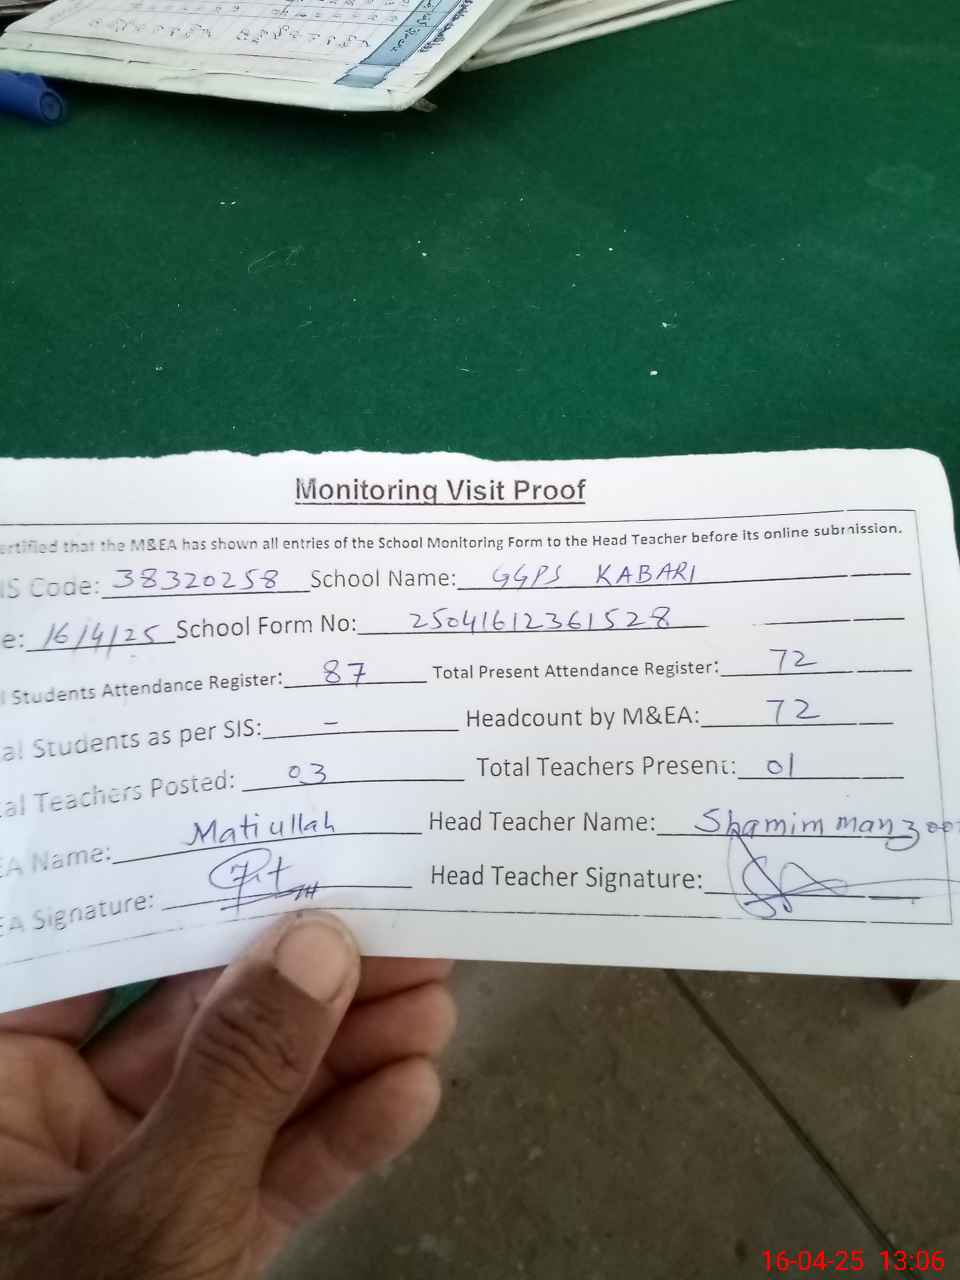 Monitoring Visit Proof
ertified that the M&EA has shown all entries of the School Monitoring Form to the Head Teacher before its online submission.
IS Code: 38320258 School Name: GGPS KABARI
e: 16/4/25 School Form No: 25041612361528
l Students Attendance Register: 87 Total Present Attendance Register: 72
al Students as per SIS: – Headcount by M&EA: 72
al Teachers Posted: 03 Total Teachers Present: 01
EA Name: Matiullah Head Teacher Name: Shamim manzoor
EA Signature: Head Teacher Signature:
16-04-25 13:06